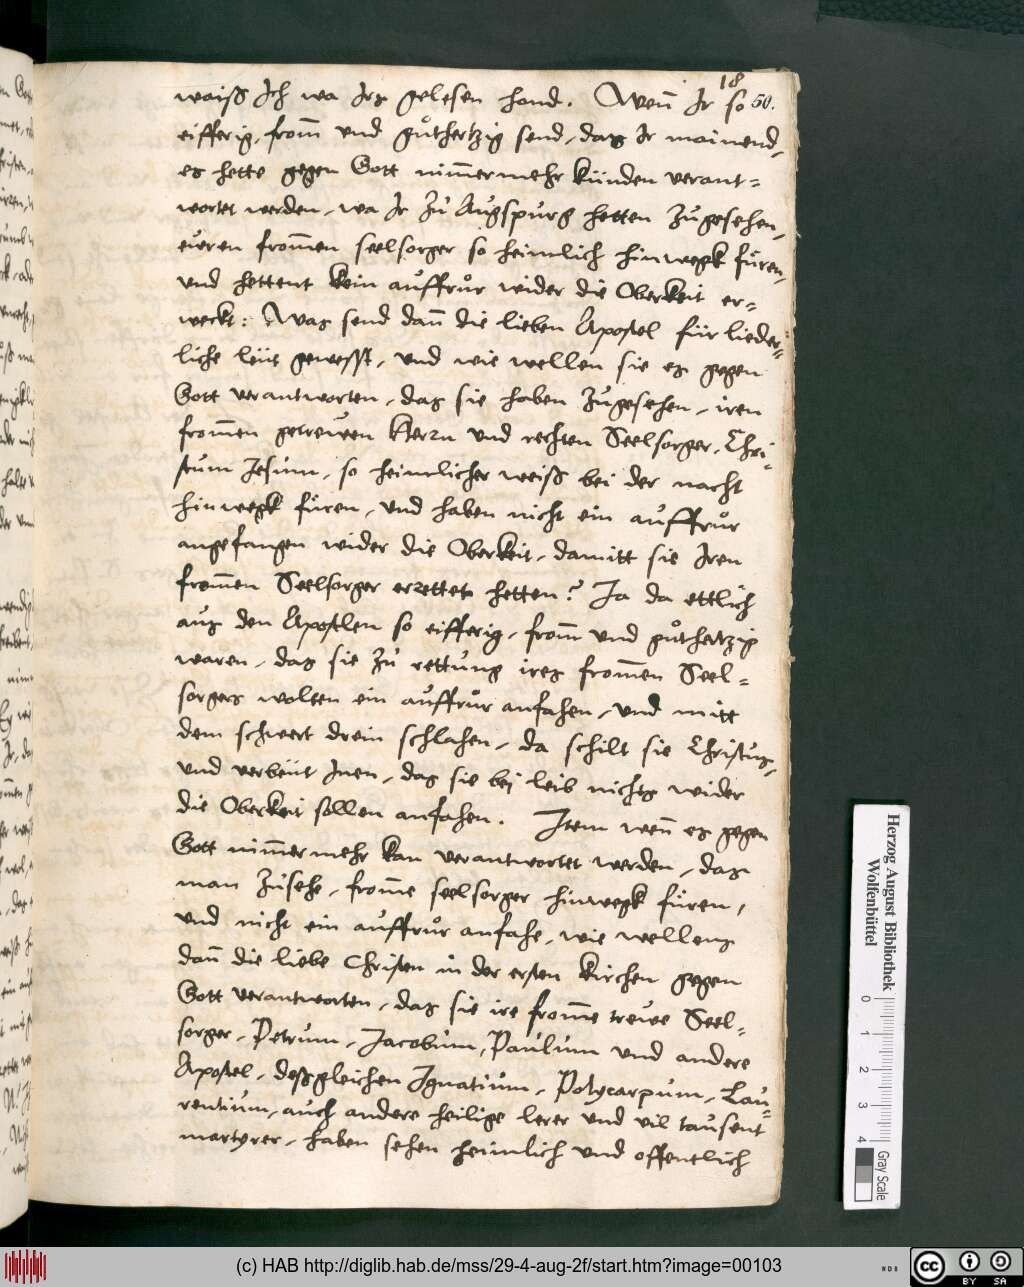 18
50.
waiß Ich wa Irs gelesen hand. Wen̄ Ir so
eifferig, from̄ und gůthertzig send, das Ir mainend,
es hette gegen Gott nim̄ermehr künden verant=
wortet werden, wa Ir zů Augspurg hetten zůgesehen,
eueren from̄en seelsorger so heimlich hinwegk füren,
und hettent kein auffrůr wider die Oberkeit er=
weckt: Was send dan̄ die lieben Apostel für lieder=
liche leüt gewesst, und wie wellen sie es gegen
Gott verantworten, das sie haben zůgesehen, iren
from̄en getreuen Herrn und rechten Seelsorger, Chri=
stum Jesum, so heimlicher weiß bei der nacht
hinwegk füren, und haben nicht ein auffrůr
angefangen wider die Oberkeit, damitt sie Iren
from̄en Seelsorger errettet hetten? Ja da ettlich
aus den Apostlen so eifferig, from̄ und gůthertzig
waren, das sie zů rettung ires from̄en Seel=
sorgers wolten ein auffrůr anfahen, und mitt
dem schwert drein schlahen, da schilt sie Christus,
und verbeüt Inen, das sie bei leib nichts wider
die Oberkeit sollen anfahen. Item wen̄ es gegen
Gott nim̄ermehr kan verantwortet werden, das
man zůsehe, from̄e seelsorger hinwegk füren,
und nicht ein auffrůr anfahe, wie wellens
dan̄ die liebe Christen in der ersten kirchen gegen
Gott verantworten, das sie ire from̄e treue Seel=
sorger, Petrum, Jacobum, Paulum und andere
Apostel, deßgleichen Ignatium, Polycarpum, Lau=
rentium, auch andere heilige lerer und vil tausent
martyrer, haben sehen heimlich und offentlich
Herzog August Bibliothek
Wolfenbüttel
0 1 2 3 4
Gray Scale
(c) HAB http://diglib.hab.de/mss/29-4-aug-2f/start.htm?image=00103
WDB
cc BY SA